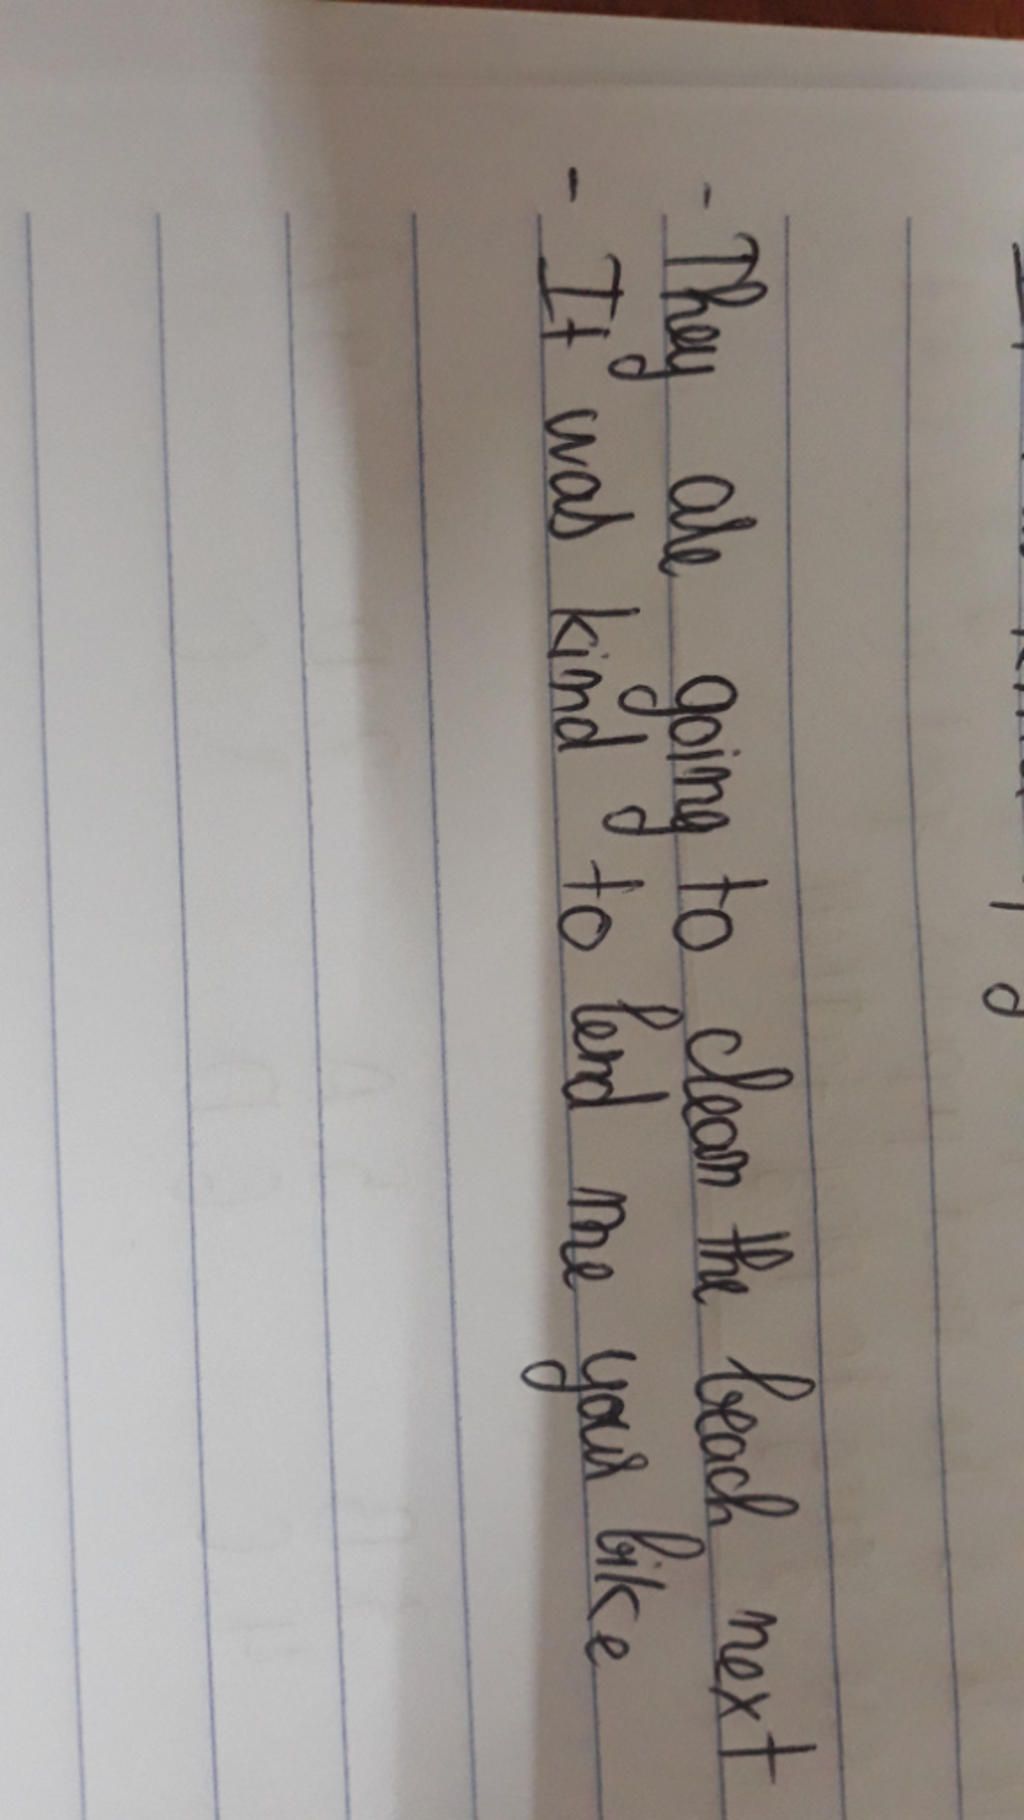 - They are going to clean the beach next
- It was kind to lend me your bike